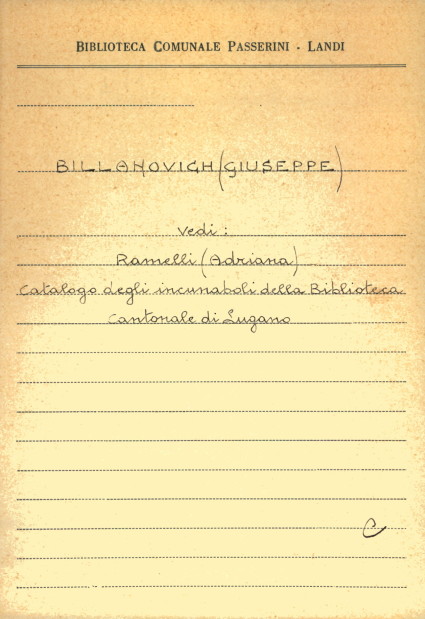 BIBLIOTECA COMUNALE PASSERINI - LANDI
BILLANOVICH (GIUSEPPE)
Vedi:
Ramelli (Adriana)
Catalogo degli incunaboli della Biblioteca
Cantonale di Lugano
C